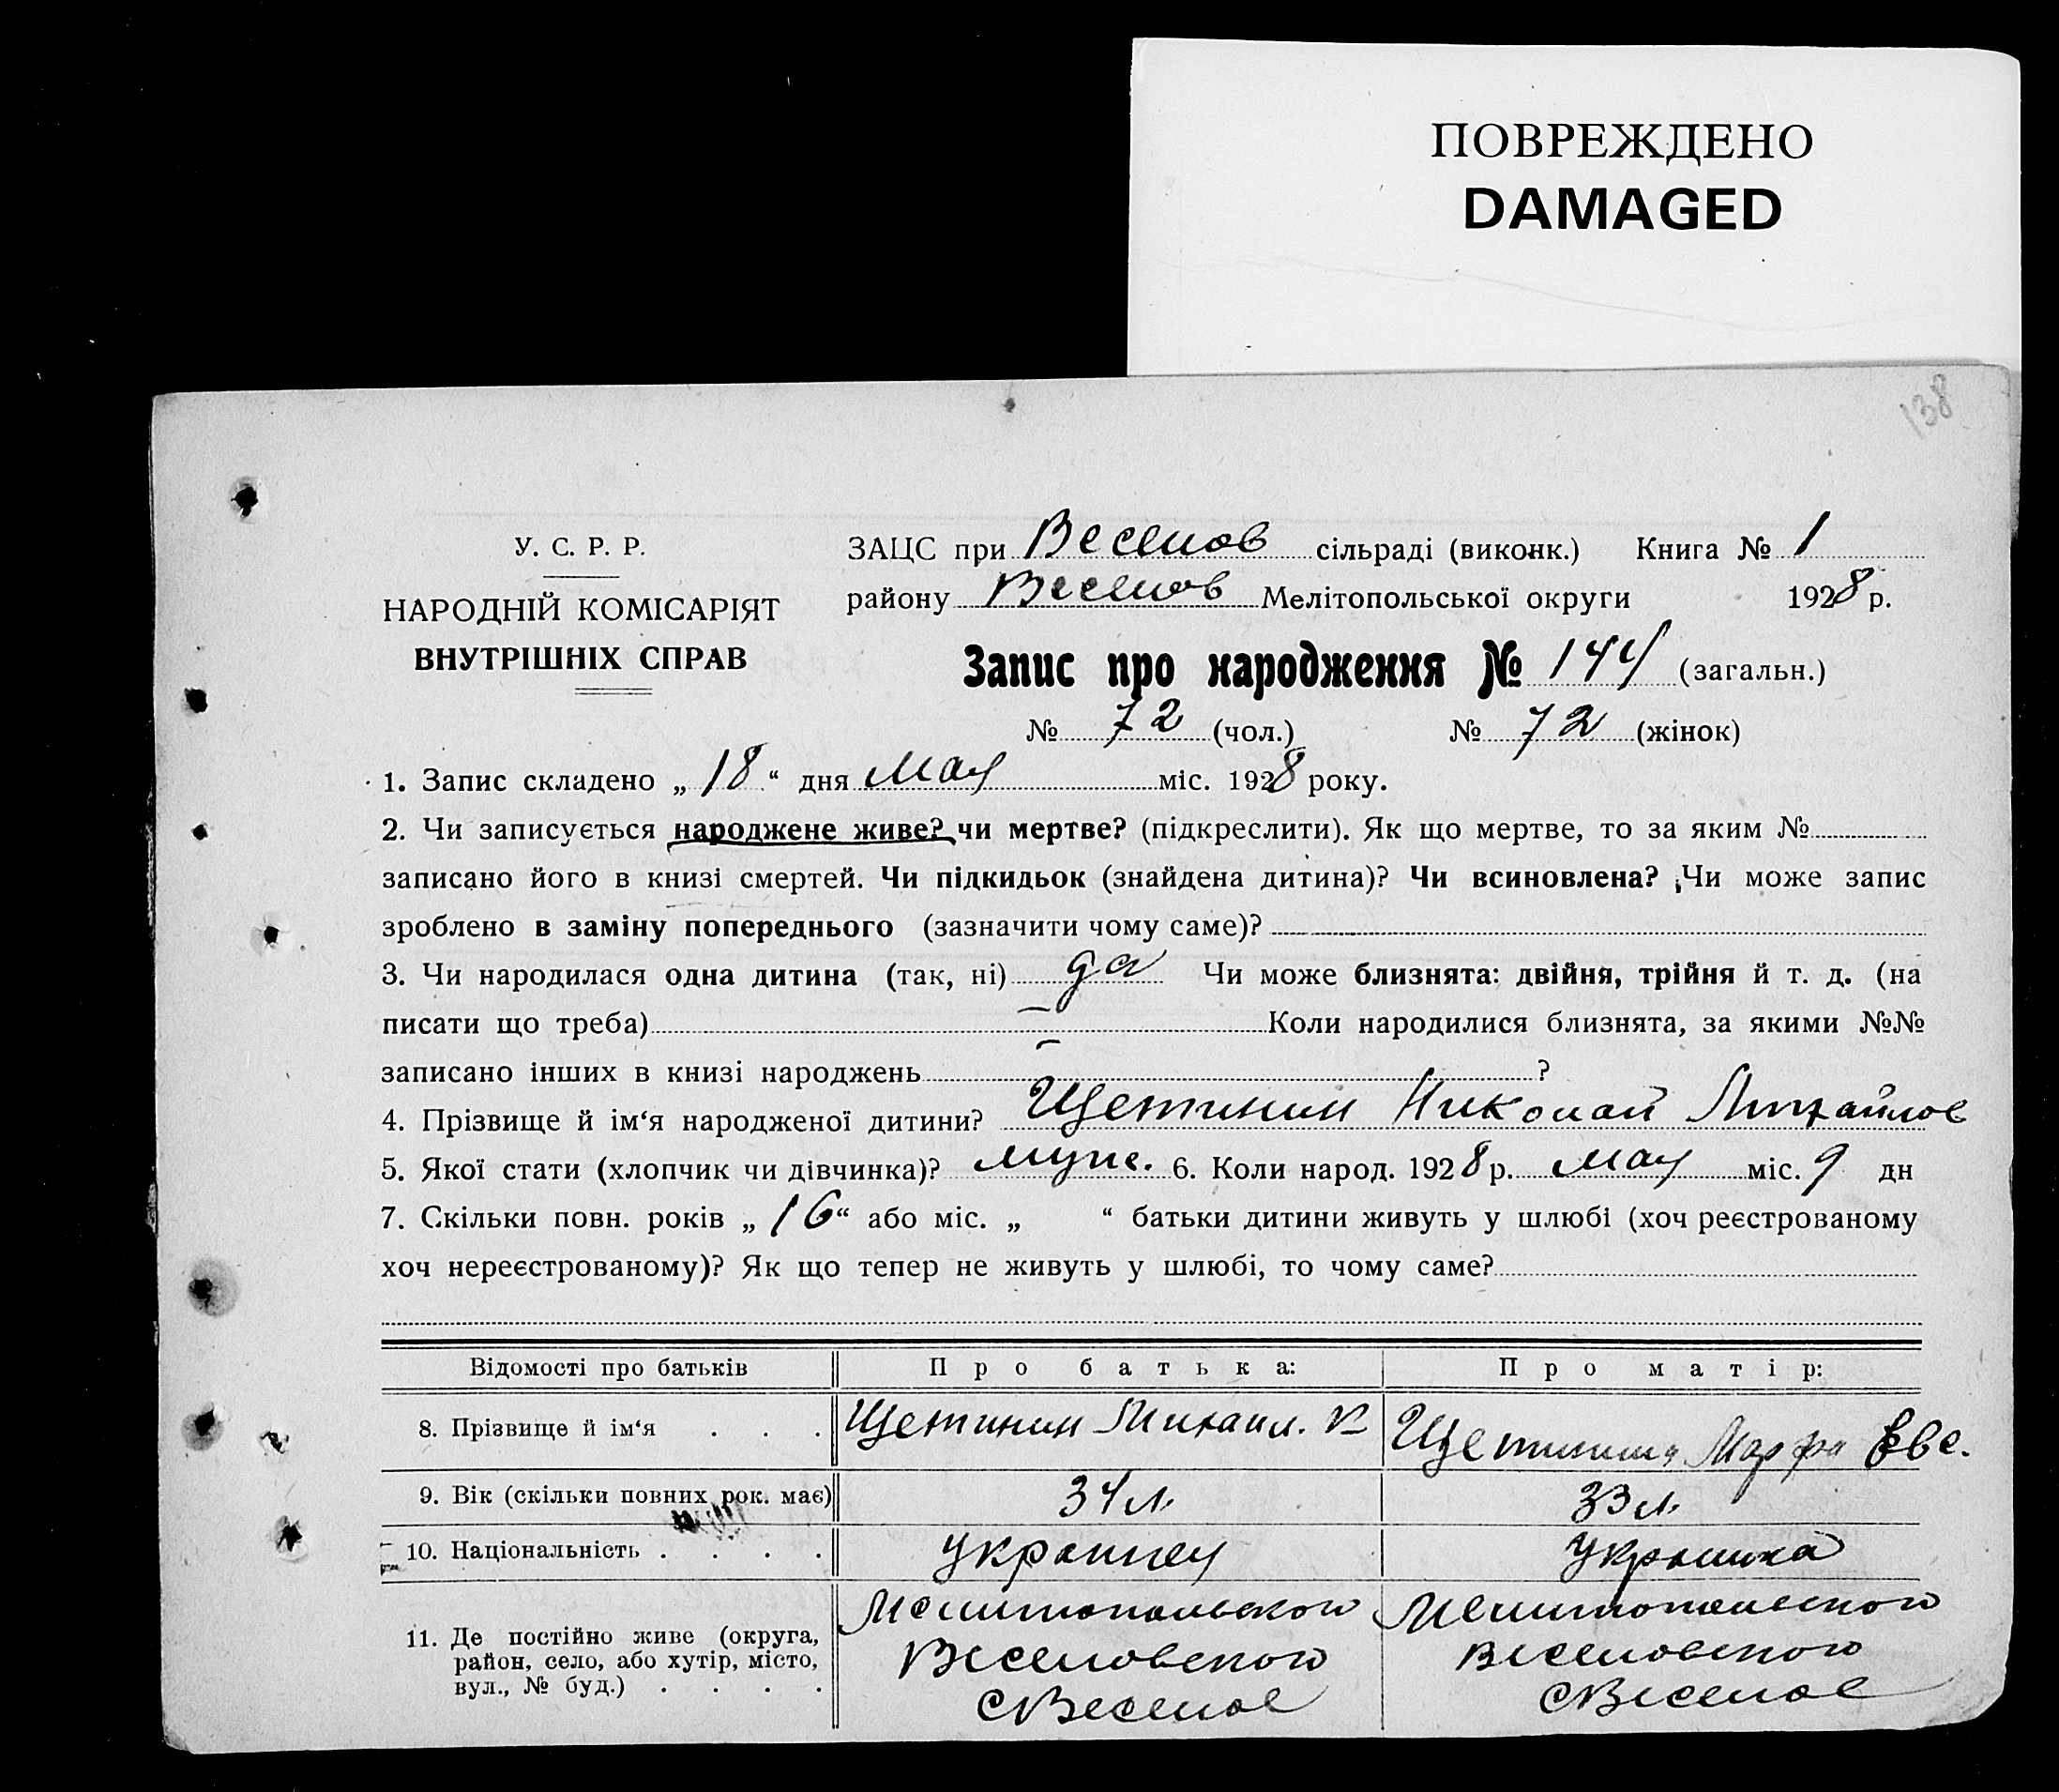 ПОВРЕЖДЕНО
DAMAGED
138
У. С. Р. Р.
НАРОДНІЙ КОМІСАРІЯТ
ВНУТРІШНІХ СПРАВ
ЗАЦС при Веселов сільраді (виконк.) Книга № 1
району Веселов Мелітопольської округи 1928 р.
Запис про народження № 144 (загальн.)
№ 72 (чол.) № 72 (жінок)
1. Запис складено „ 18 “ дня мая міс. 1928 року.
2. Чи записується народжене живе? чи мертве? (підкреслити). Як що мертве, то за яким №
записано його в книзі смертей. Чи підкидьок (знайдена дитина)? Чи всиновлена? Чи може запис
зроблено в заміну попереднього (зазначити чому саме)?
3. Чи народилася одна дитина (так, ні) да Чи може близнята: двійня, трійня й т. д. (на
писати що треба) Коли народилися близнята, за якими №№
записано інших в книзі народжень ?
4. Прізвище й ім‘я народженої дитини? Щетинин Николай Михайлов
5. Якої стати (хлопчик чи дівчинка)? муж. 6. Коли народ. 1928 р. мая міс. 9 дн
7. Скільки повн. років „ 16 “ або міс. „ “ батьки дитини живуть у шлюбі (хоч реєстрованому
хоч нереєстрованому)? Як що тепер не живуть у шлюбі, то чому саме?
Відомості про батьків Про батька: Про матір:
8. Прізвище й ім‘я . . . Щетинин Михаил. К Щетинина Марфа Евс.
9. Вік (скільки повних рок. має) 34 л. 33 л.
10. Національність . . . . украинец украинка
11. Де постійно живе (округа, район, село, або хутір, місто, вул., № буд.) . . . .
Мелитопольского
Веселовского
с Веселое
Мелитопольского
Веселовского
с Веселое